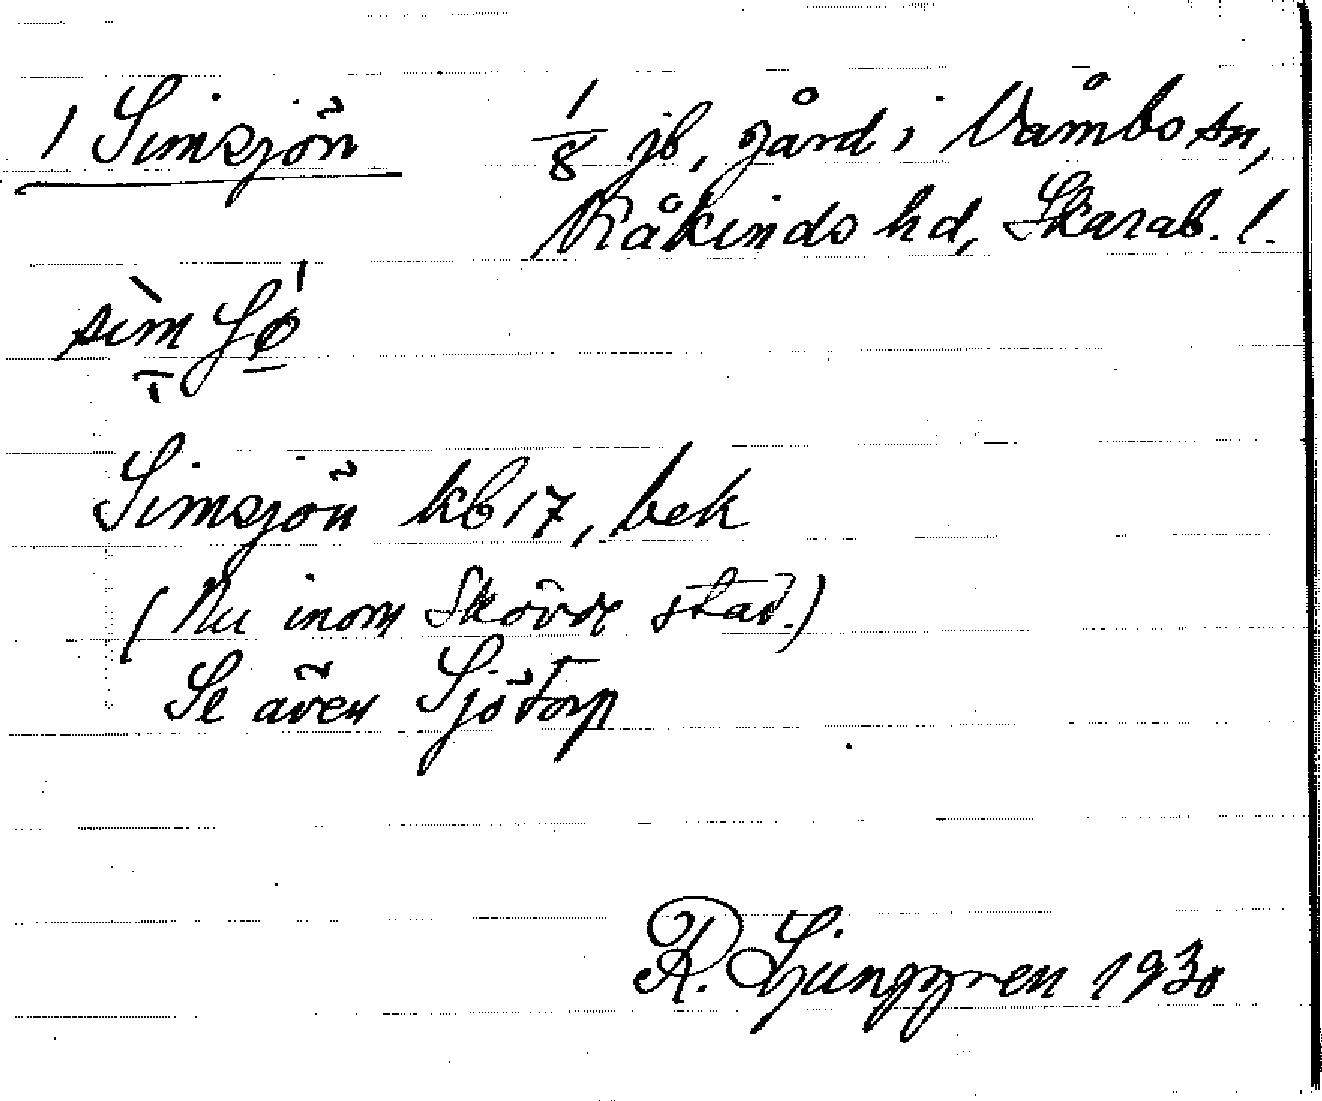 1 Simsjön 1/8 jb, gård i Våmbs sn,
Kåkinds hd, Skarab. l.
Simsjön kb 17, bek
(Nu inom Skövde stad.)
Se även Sjötorp
R. Ljunggren 1930